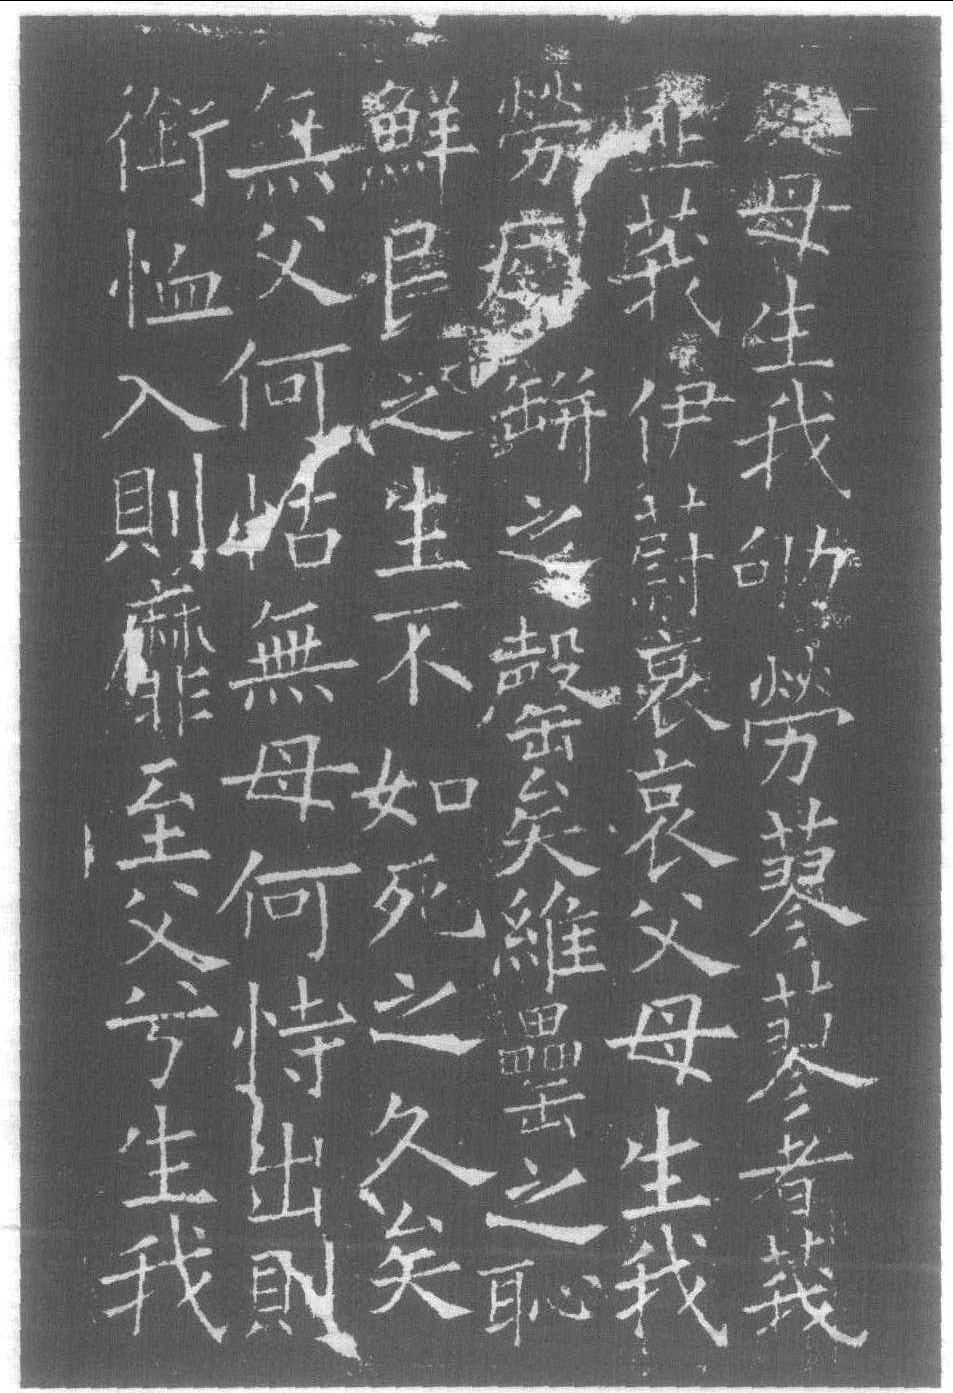 父母生我劬勞蓼蓼者莪
匪莪伊蔚哀哀父母生我
勞瘁缾之罄矣維罍之恥
鮮民之生不如死之久矣
無父何怙無母何恃出則
銜恤入則靡至父兮生我